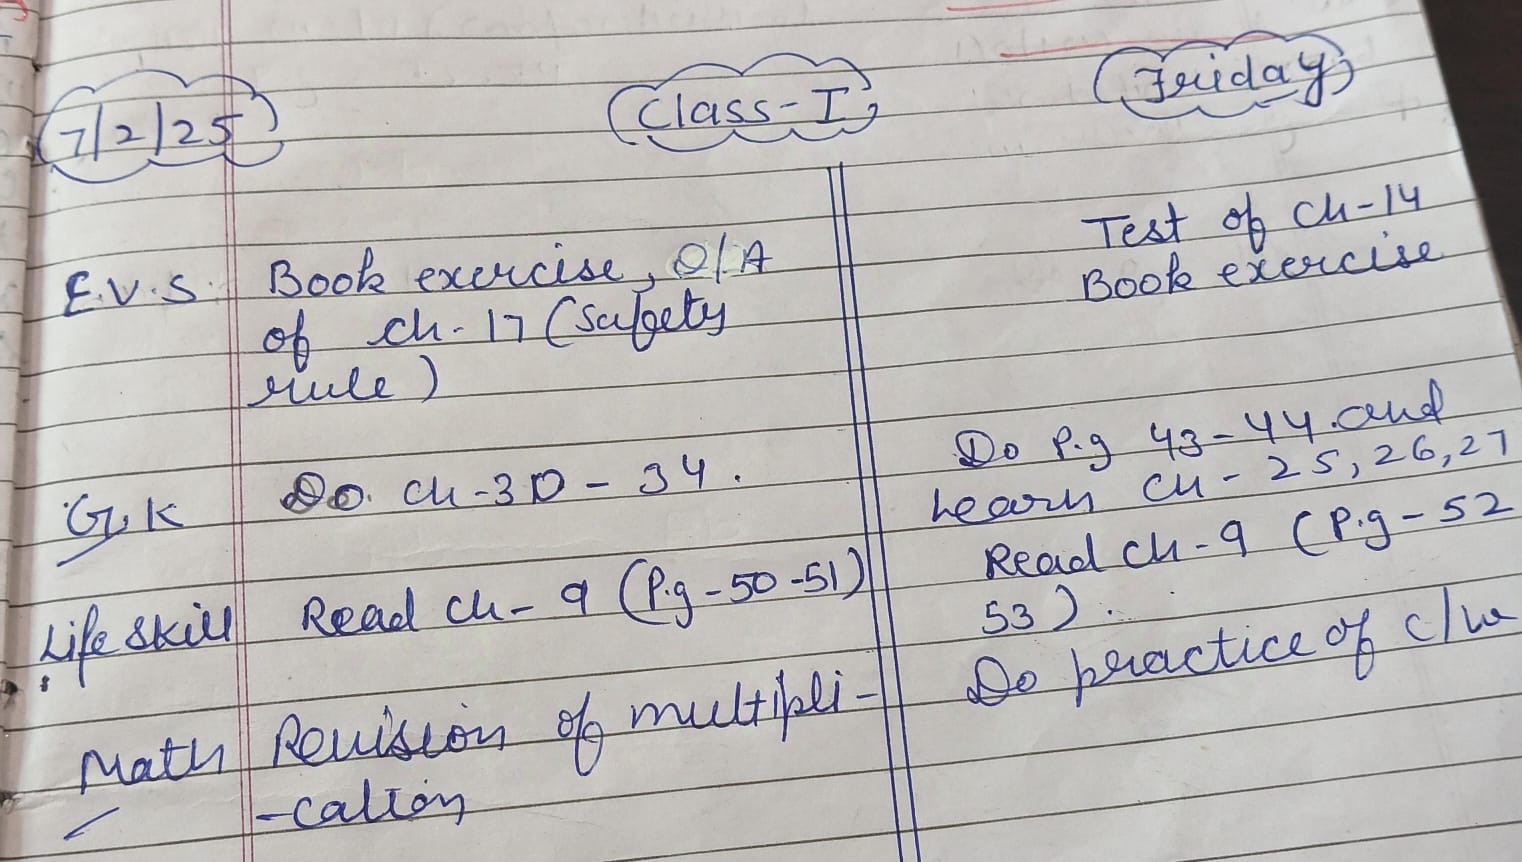 7/2/25 Class-I Friday
E.V.S. Book exercise, Q/A
of ch-17 (Safety
rule)
Test of Ch-14
Book exercise
G.K Do. ch-30-34.
Do P.g 43-44. and
Learn ch-25, 26, 27
Life skill Read ch-9 (P.g-50-51)
Read ch-9 (P.g-52
53).
Math Revision of multipli-
-cation
Do practice of c/w